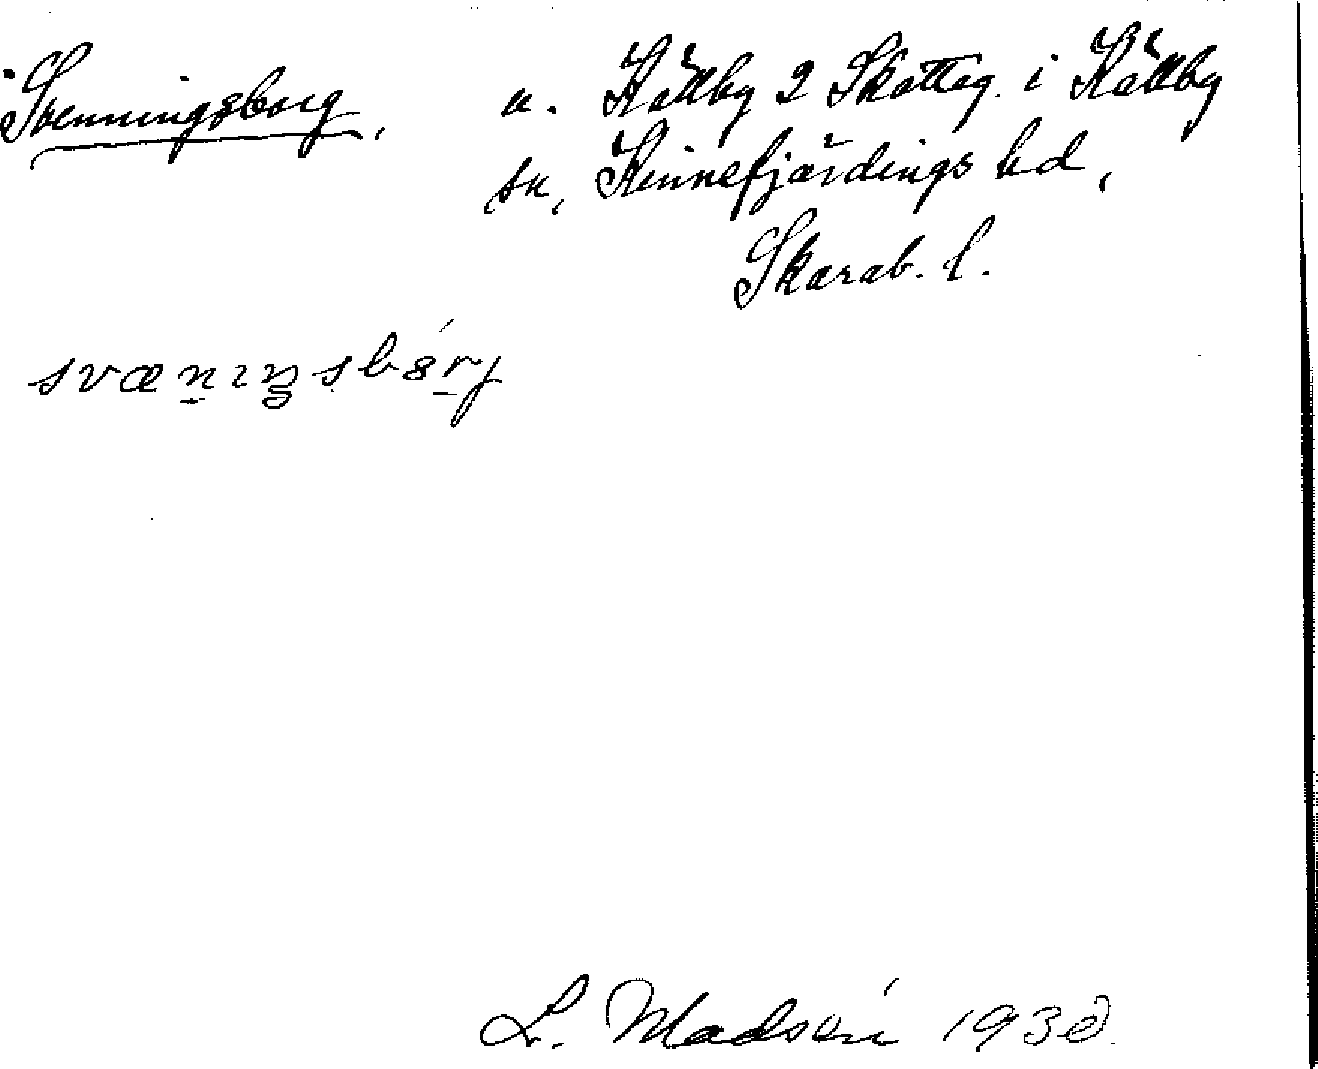 Svenningsborg, u. Källby 2 Skatteg. i Källby
sn, Kinnefjärdings hd,
Skarab. l.
L. Madsén 1930.